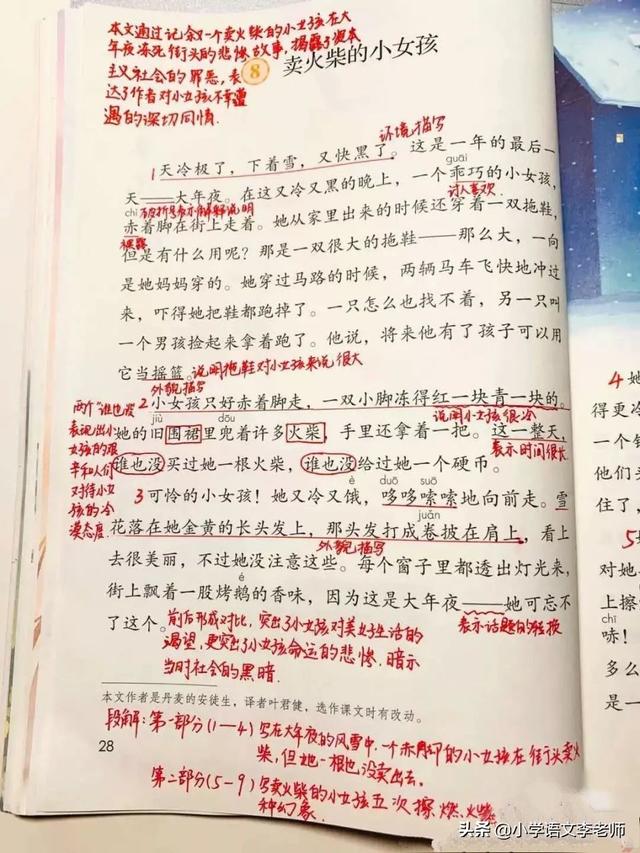 本文通过记叙一个卖火柴的小女孩在大
年夜冻死街头的悲惨故事,揭露了资本
主义社会的罪恶,表
达了作者对小女孩不幸遭
遇的深切同情.
8
卖火柴的小女孩
环境描写
1天冷极了,下着雪,又快黑了。这是一年的最后一
guāi
天——大年夜。在这又冷又黑的晚上,一个乖巧的小女孩,
讨人喜欢
chì
破折号表示解释说明
赤着脚在街上走着。她从家里出来的时候还穿着一双拖鞋,
裸露
但是有什么用呢?那是一双很大的拖鞋——那么大,一向
是她妈妈穿的。她穿过马路的时候,两辆马车飞快地冲过
来,吓得她把鞋都跑掉了。一只怎么也找不着,另一只叫
一个男孩捡起来拿着跑了。他说,将来他有了孩子可以用
它当摇篮。
说明拖鞋对小女孩来说很大
外貌描写
2小女孩只好赤着脚走,一双小脚冻得红一块青一块的。
说明小女孩很冷
jiù
dōu
她的旧围裙里兜着许多火柴,手里还拿着一把。这一整天,
表示时间很长
谁也没买过她一根火柴,谁也没给过她一个硬币。
两个"谁也没"
表现出小
女孩的艰
辛和人们
对待小女
孩的冷
漠态度.
è
duō
suō
3可怜的小女孩!她又冷又饿,哆哆嗦嗦地向前走。雪
juǎn
花落在她金黄的长头发上,那头发打成卷披在肩上,看上
外貌描写
去很美丽,不过她没注意这些。每个窗子里都透出灯光来,
é
街上飘着一股烤鹅的香味,因为这是大年夜——她可忘不
表示话题的转换
了这个。
前后形成对比,突出了小女孩对美好生活的
渴望,更突出了小女孩命运的悲惨.暗示
当时社会的黑暗.
本文作者是丹麦的安徒生,译者叶君健,选作课文时有改动。
段解:第一部分(1—4)写在大年夜的风雪中,一个赤脚的小女孩在街头卖火
柴,但她一根也没卖出去.
28
第二部分(5-9)写卖火柴的小女孩五次擦燃火柴
种幻象.
4她
得更冷
一个
他们
住了,
5她
为她
上擦
chī
哧!
多么
是一
头条@小学语文李老师